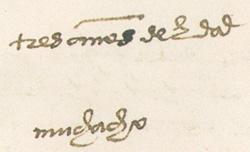 tres años de hedad
muchacho